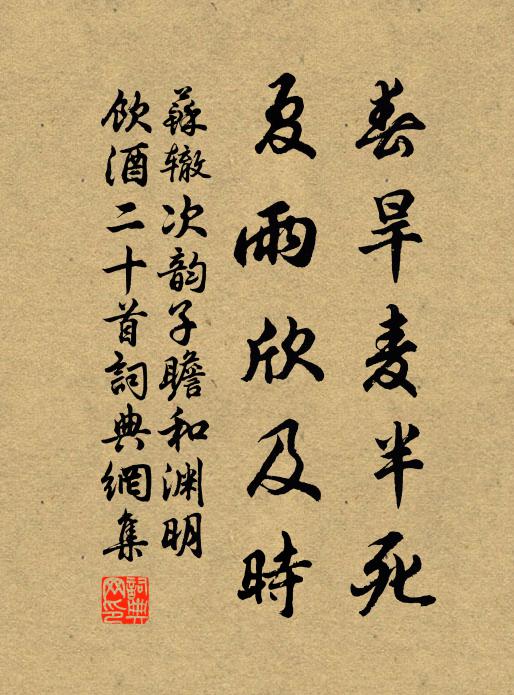 春旱麦半死
夏雨欣及時
蘇辙次韵子瞻和渊明
飲酒二十首詞典網集
詞典
网印